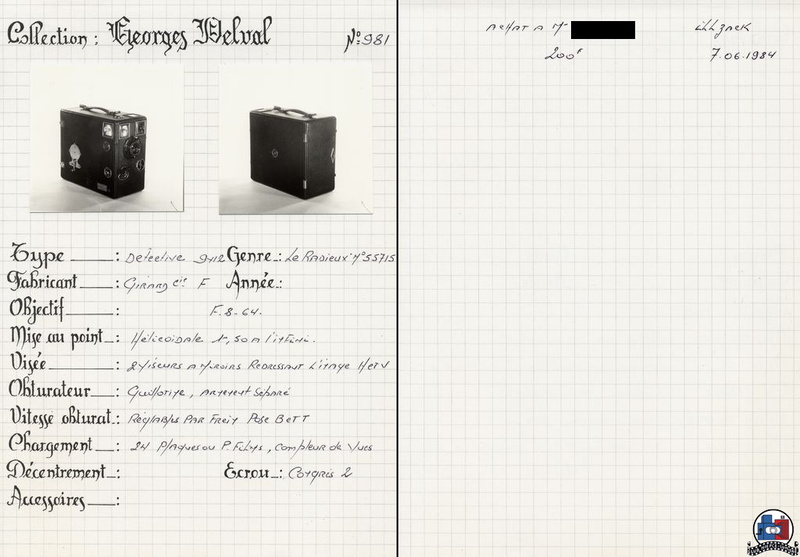 Collection : Georges Delval Nº 981
Type : Détective 9x12 Genre : Le Radieux Nº 55715
Fabricant : Girard Cie F Année :
Objectif : F.8-64.
Mise au point : Hélicoïdale 1,50 à l'infini.
Visée : 2 Viseurs à Miroirs Redressant L'image H et V
Obturateur : Guillotine, armement Séparé
Vitesse obturat. : Réglables Par Frein Pose B et T
Chargement : 24 Plaques ou P. Films, Compteur de Vues
Décentrement : Ecrou : Congrès 2
Accessoires :
Achat à Mr Illzack
200F 7.06.1984